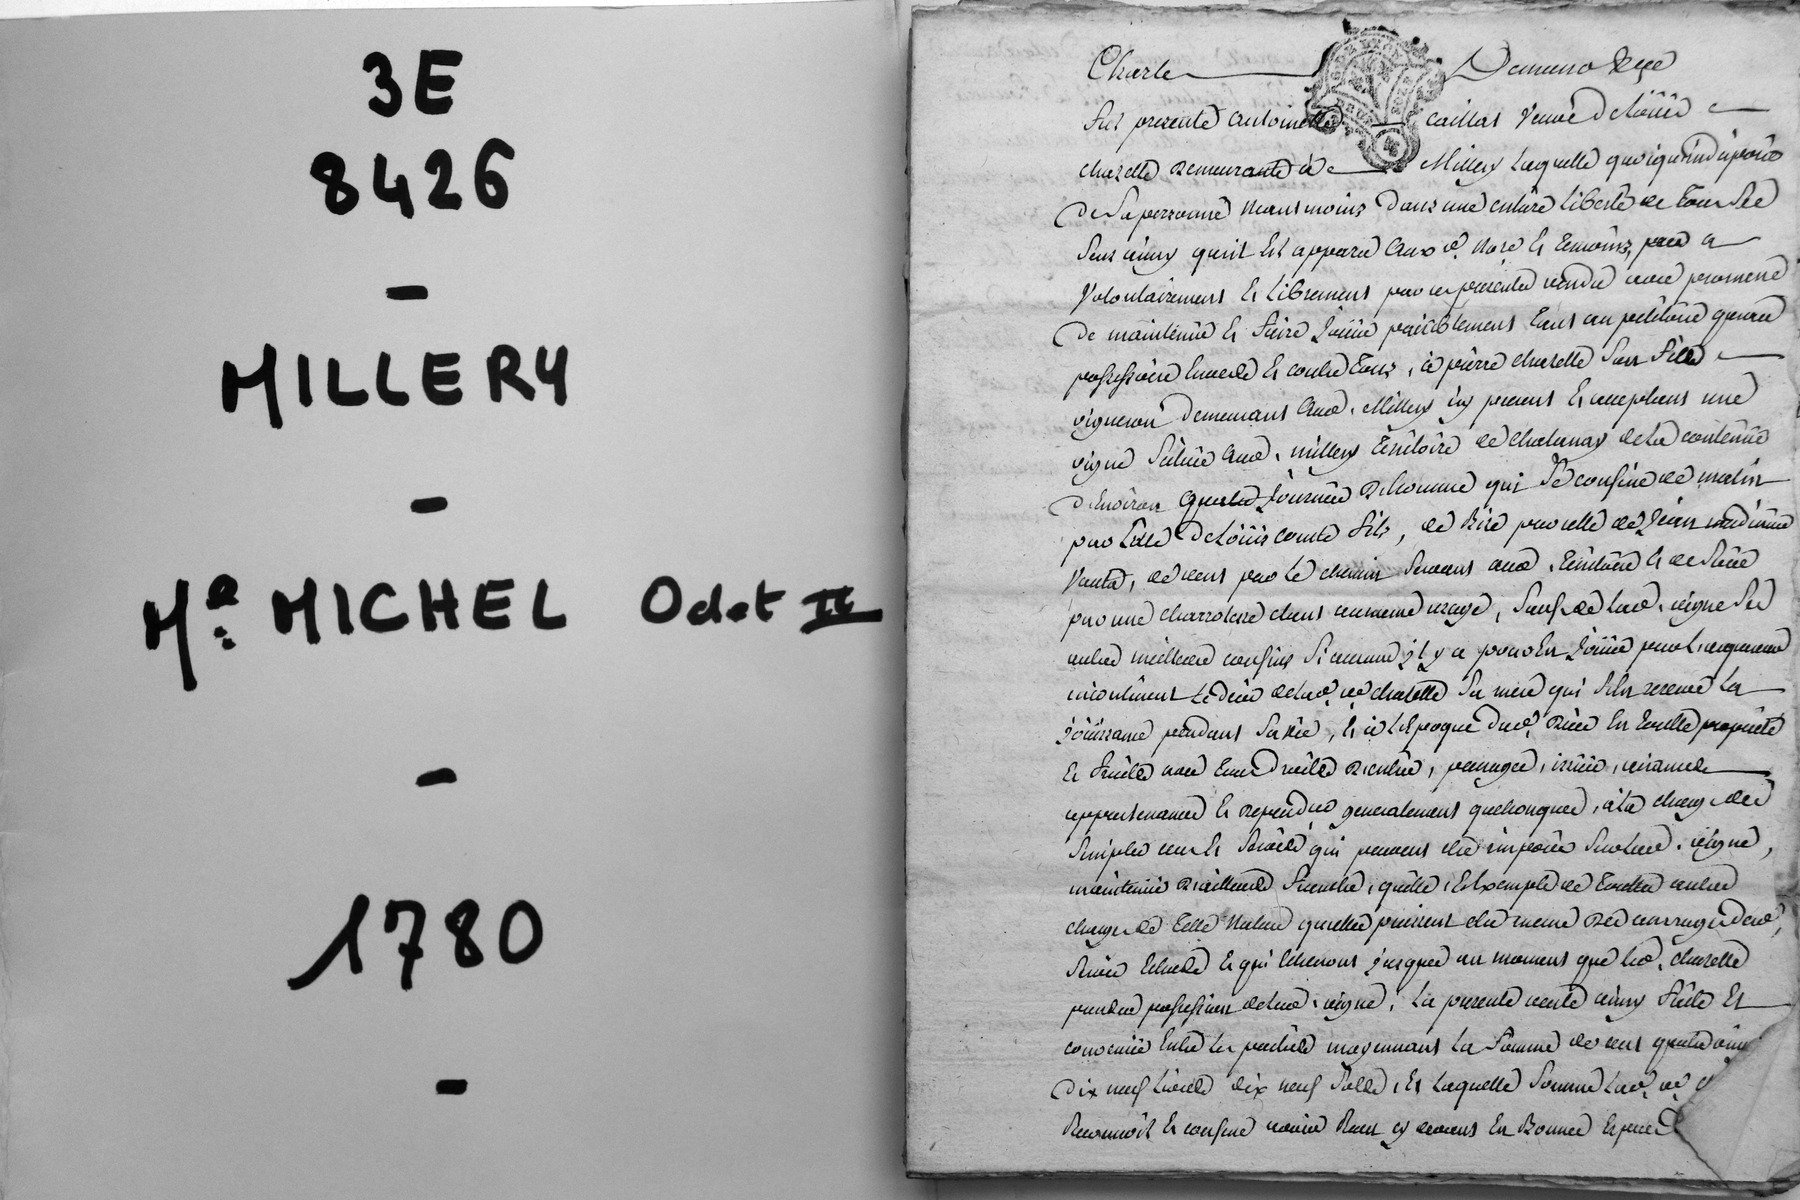 3E
8426
-
MILLERY
-
Me MICHEL Odet II
-
1780
-
Charle
fut presente antoinette caillat veuve de Loüis
chazelle demeurante à Millery Laquelle quoique
de sa personne neantmoins dans une entiere Liberté de tous ses
sens ainsy qu'il est apparu aux d. No.re et temoins, a
volontairement et Librement par ces presentes vendu avec promesse
de maintenir et faire Joüir paisiblement tant au petitoire que au
possessoire envers et contre tous, à pierre chazelle son fils
vigneron demeurant aud. Millery icy present et acceptant une
vigne scituée aud. millery territoire de chatanay de La contenüe
d'environ quatre Journées d'homme qui se confine de matin
par celle de Loüis comte fils, de bize par celle de Jean
de vent par Le chemin servant aud. territoire et de soir
par une charrotiere étant au même usage, sauf de lad. vigne ses
autres meilleurs confins si aucuns y il y a pour en Joüir par L'acquereur
incontinent Le deces de lad. ve chazelle sa mere qui s'en reserve La
joüissance pendant sa vie, et à L'epoque dud. deces en toutte propriété
et fruits avec tous droits d'entrée, passages, issües, aisances
appartenances et dependces generalement quelconques, à la charge des
simples cens et servis qui peuvent être imposés sur lad. vigne,
maintenüe d'ailleurs franche, quitte, et exempte de touttes autres
charges de telle nature qu'elles puissent être meme des arrerages desd.
servis echus et qui echeront jusques au moment que led. chazelle
prendra possession de lad. vigne, La presente vente ainsy faite et
convenüe entre Les parties moyennant La somme de cent quatre vingt
dix neuf Livres dix neuf sols, et Laquelle somme Lad. ve
Reconnoît et confesse avoir Reçu cy devant en Bonnes especes